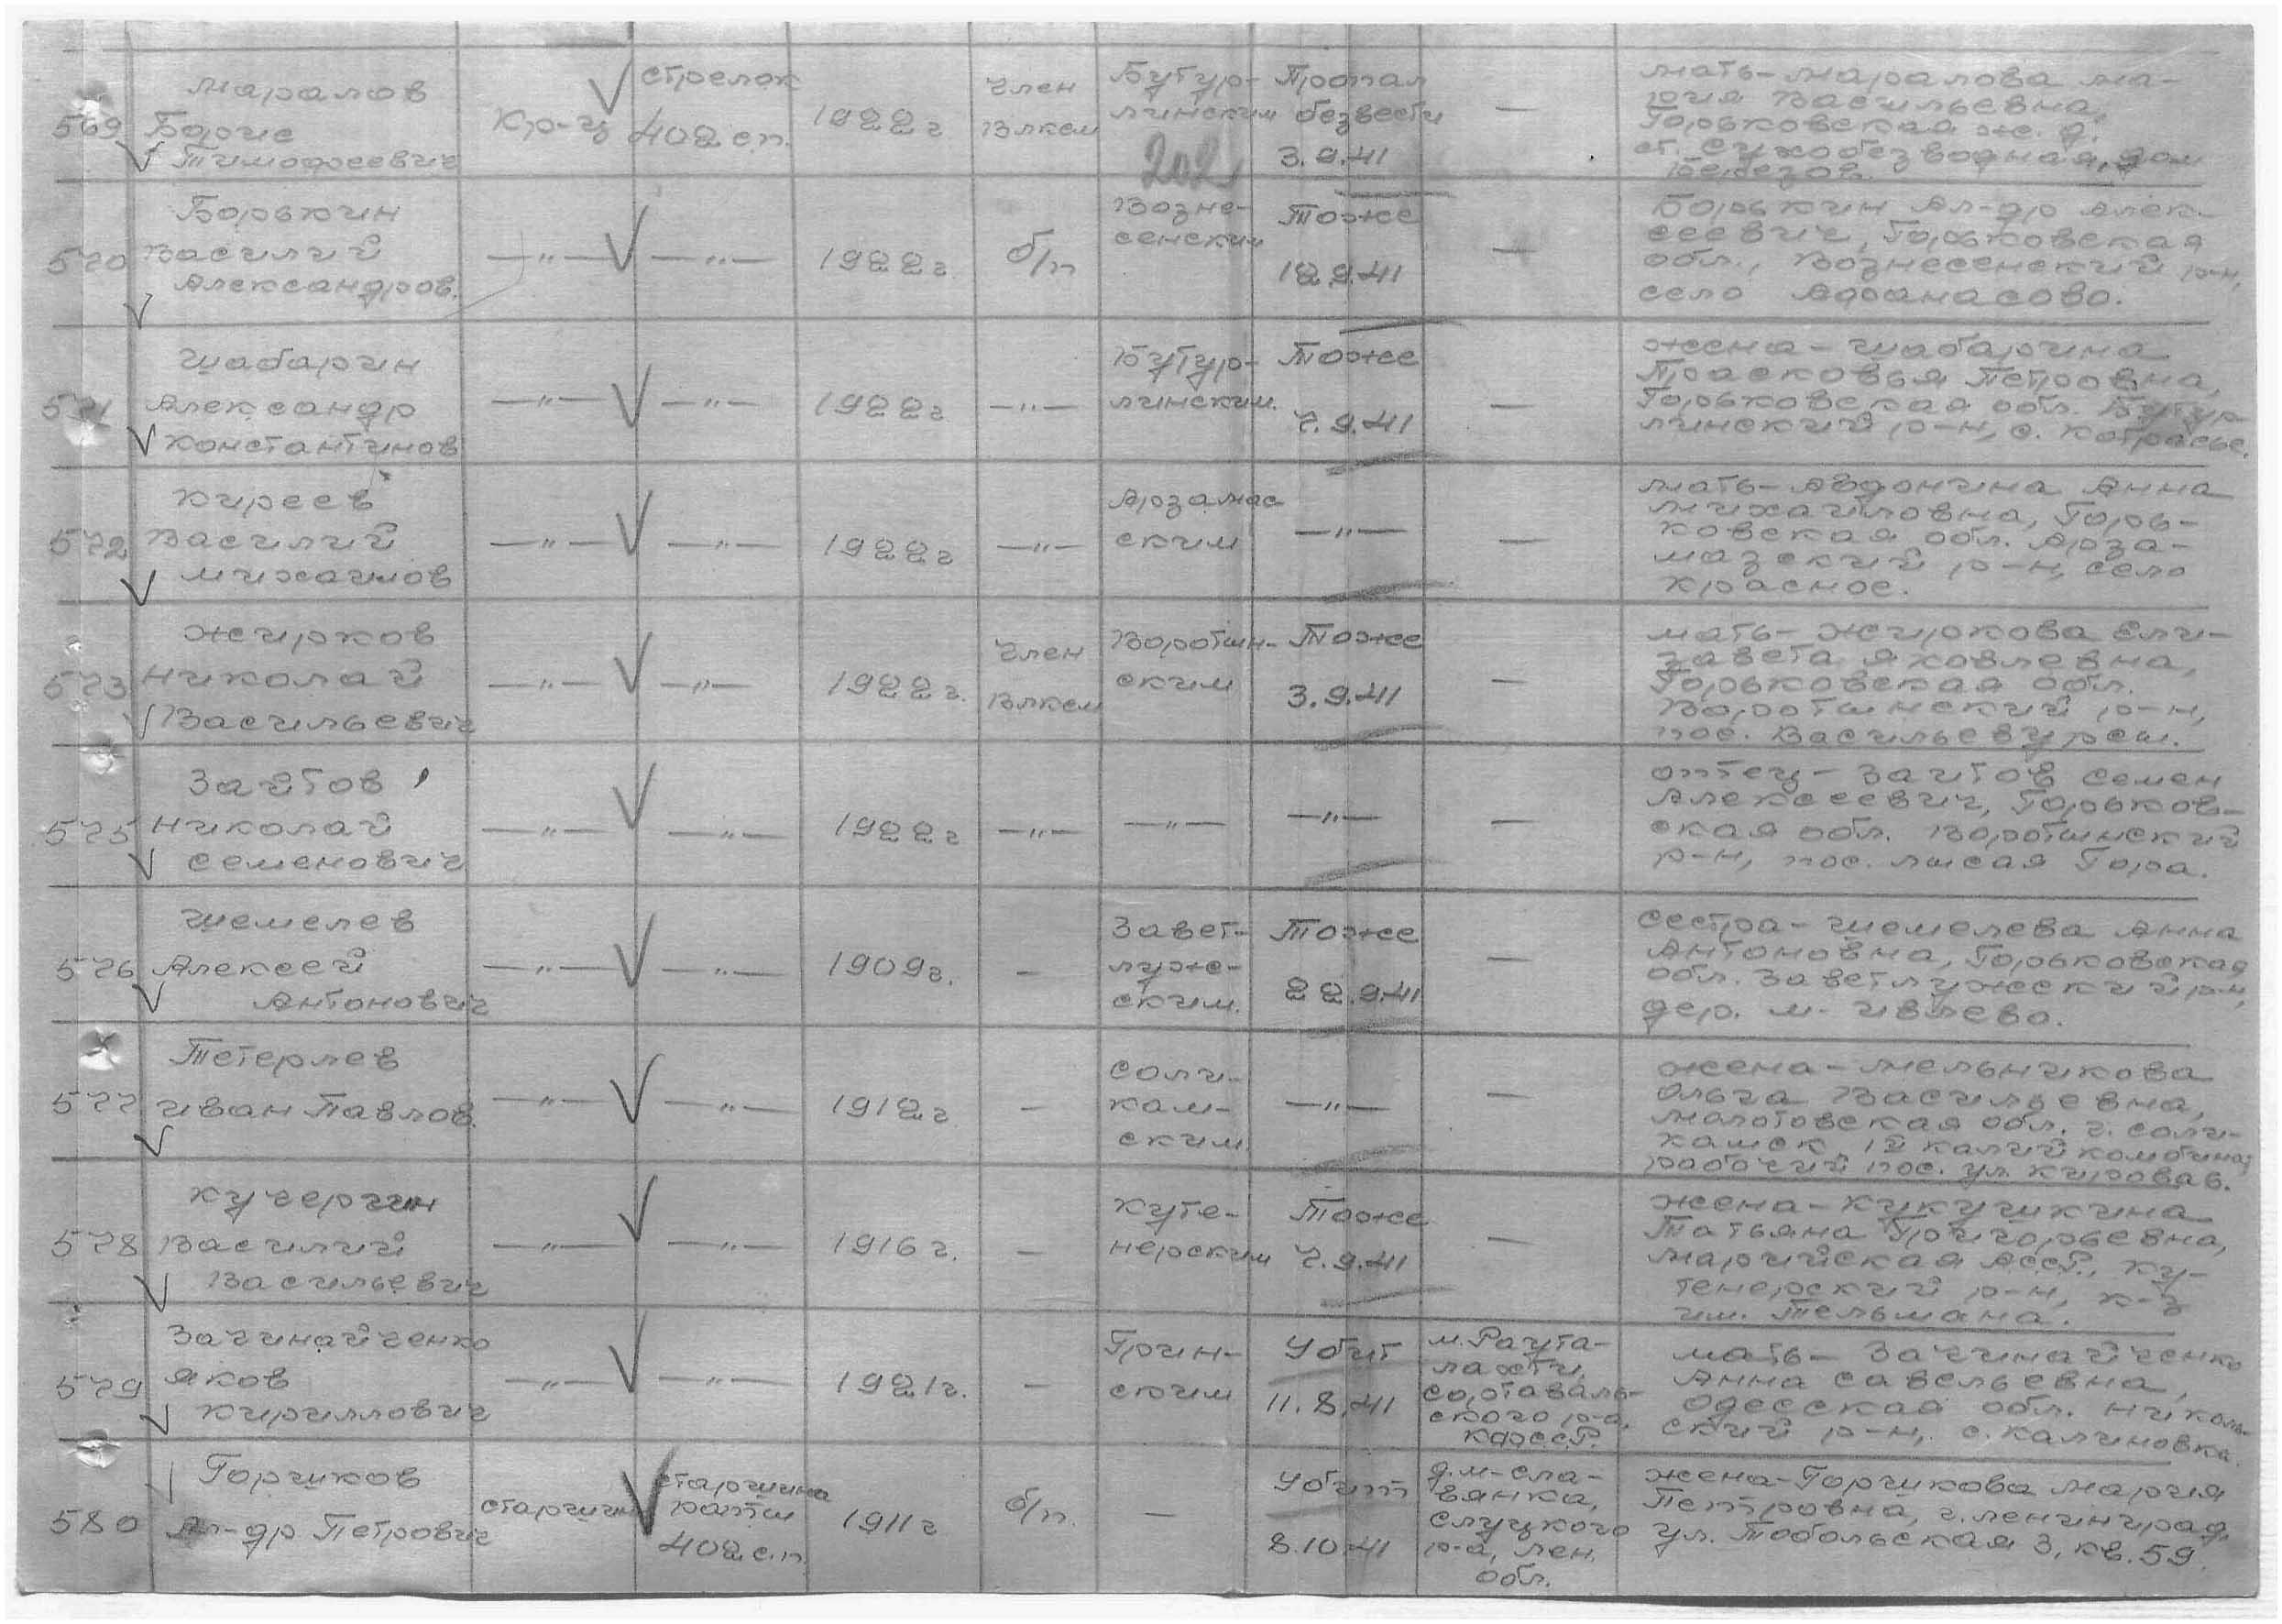 569
Маралов
Борис
Тимофеевич
кр-ц
стрелок
402 сп.
1922 г
Член
Влксм
Бутур-
линским
202
Пропал
без вести
3.9.41
—
мать – Маралова Ма-
рия Васильевна,
Горьковская ж. д.
ст. Сухобезводная, дом
Березов.
570
Борькин
Василий
Александров.
—"—
—"—
1922 г.
б/п
Возне-
сенским
Тоже
12.9.41
—
Борькин Ал-др Алек-
сеевич, Горьковская
обл., Вознесенский р-н,
село Афанасово.
571
Шабарин
Александр
Константинов
—"—
—"—
1922 г
—"—
Бутур-
линским.
Тоже
7.9.41
—
жена – Шабарина
Прасковья Петровна,
Горьковская обл. Бутур
линский р-н, с.
572
Киреев
Василий
Михайлов
—"—
—"—
1922 г
—"—
Арзамас
ским
—"—
—
мать – Авдонина Анна
Михайловна, Горь-
ковская обл. Арза-
мазский р-н, село
Красное.
573
Жирков
Николай
Васильевич
—"—
—"—
1922 г.
Член
Влксм
Воротын-
ским
Тоже
3.9.41
—
мать – Жиркова Ели-
завета Яковлевна,
Горьковская обл.
Воротынский р-н,
пос. Васильевурск.
575
Зайтов
Николай
Семенович
—"—
—"—
1922 г
—"—
—"—
—"—
—
отец – Заитов Семен
Алексеевич, Горьков-
ская обл. Воротынский
р-н, пос. Лысая Гора.
576
Шемелев
Алексей
Антонович
—"—
—"—
1909 г.
—
Завет-
луже-
ским.
Тоже
22.9.41
—
Сестра – Шемелева Анна
Антоновна, Горьковская
обл. Заветлужеский р-н,
дер. М. Ивлево.
577
Тетерлев
Иван Павлов.
—"—
—"—
1912 г
—
Соли-
кам-
ским
—"—
—
жена – Мельникова
Ольга Васильевна,
Молотовская обл. г. Соли-
камск 1й калийкомбинат
рабочий пос. ул. Кирова 6.
578
Кучергин
Василий
Васильевич
—"—
—"—
1916 г.
—
Куже-
нерским
Тоже
7.9.41
—
жена – Кукушкина
Татьяна Григорьевна,
Марийская АССР, Ку-
женерский р-н, к-з
им. Тельмана.
579
Зачинайченко
Яков
Кириллович
—"—
—"—
1921 г.
—
Грин-
ским
Убит
11.8.41
м. Раута-
лахти,
Сортаваль-
ского р-а,
КФССР.
мать – Зачинайченко
Анна Савельевна,
Одесская обл. Николь-
ский р-н, с. Калиновка.
580
Горшков
Ал-др Петрович
старшина
старшина
роты
402 с.п.
1911 г
б/п.
—
Убит
8.10.41
д. М-Сла-
вянка,
Слуцкого
р-а, Лен.
обл.
жена – Горшкова Мария
Петровна, г. Ленинград,
ул. Тобольская 3, кв. 59.